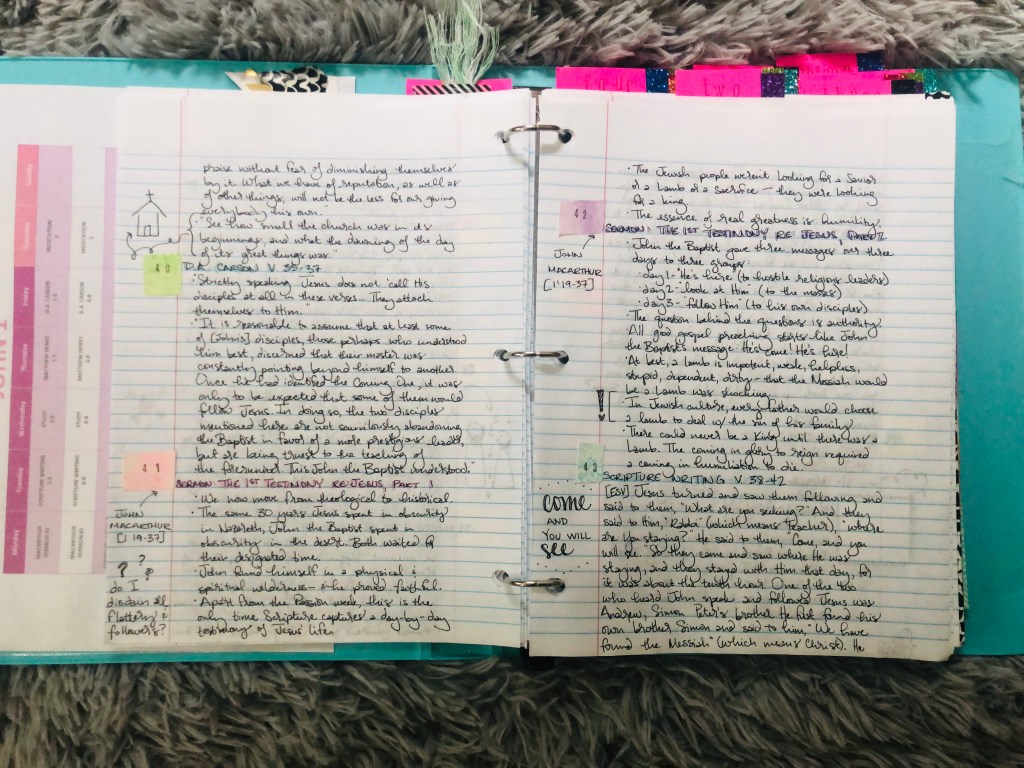 four
two
praise without fear of diminishing themselves
by it. What we have of reputation, as well as
of other things, will not be the less for our giving
everybody his own.
"See how small the church was in its
beginnings, and what the dawning of the day
of its great things was."
40
D.A. CARSON V. 35-37
"Strictly speaking Jesus does not 'call' His
disciples at all in these verse... They attach
themselves to Him."
"It is reasonable to assume that at least some
of [John's] disciples, those perhaps who understood
him best, discerned that their master was
constantly pointing beyond himself to another.
Once he had identified the Coming One, it was
only to be expected that some of them would
follow Jesus. In doing so, the two disciples
mentioned here are not sauniously abandoning
the Baptist in favor of a more prestigious leader,
but are being truest to the teaching of
the forerunner. This John the Baptist understood."
41
SERMON: THE 1ST TESTIMONY RE: JESUS, PART 1
JOHN
MACARTHUR
[J 1:19-37]
· We now move from theological to historical.
· The same 30 years Jesus spent in obscurity
in Nazareth, John the Baptist spent in
obscurity in the desert. Both waited
their designated time.
· John found himself in a physical &
spiritual wilderness & he proved faithful.
· Apart from the Passion week, this is the
only time Scripture captures a day-by-day
testimony of Jesus' life.
? ? ?
do I
disdain
flattery &
followers?
· The Jewish people weren't looking for a Savior
or a Lamb or a sacrifice — they were looking
for a king.
· The essence of real greatness is humility.
42
SERMON: THE 1ST TESTIMONY RE: JESUS, PART II
JOHN
MACARTHUR
[1:19-37]
· John the Baptist gave three messages over three
days to three groups:
· day 1 - "He's here" (to hostile religious leaders)
· day 2 - "look at Him" (to the masses)
· day 3 - "follow Him" (to his own disciples)
· The question behind the questions is authority.
· All good gospel preaching starts like John
the Baptist's message: He's come! He's here!
· At best, a lamb is impotent, weak, helpless,
stupid, dependent, dirty - that the Messiah would
be a Lamb was shocking.
!
· In Jewish culture, every father would choose
a lamb to deal w/ the sin of his family.
· There could never be a King until there was a
Lamb. The coming in glory to reign required
a coming in humiliation to die.
43
SCRIPTURE WRITING V. 38-42
come
AND
YOU WILL
see
[ESV] Jesus turned and saw them following and
said to them, "What are you seeking?" And they
said to Him, "Rabbi" (which means Teacher), "where
are you staying?" He said to them, "Come, and you
will see." So they came and saw where He was
staying, and they stayed with Him that day, for
it was about the tenth hour. One of the two
who heard John speak and followed Jesus was
Andrew, Simon Peter's brother. He first found his
own brother Simon and said to him, "We have
found the Messiah" (which means Christ). He